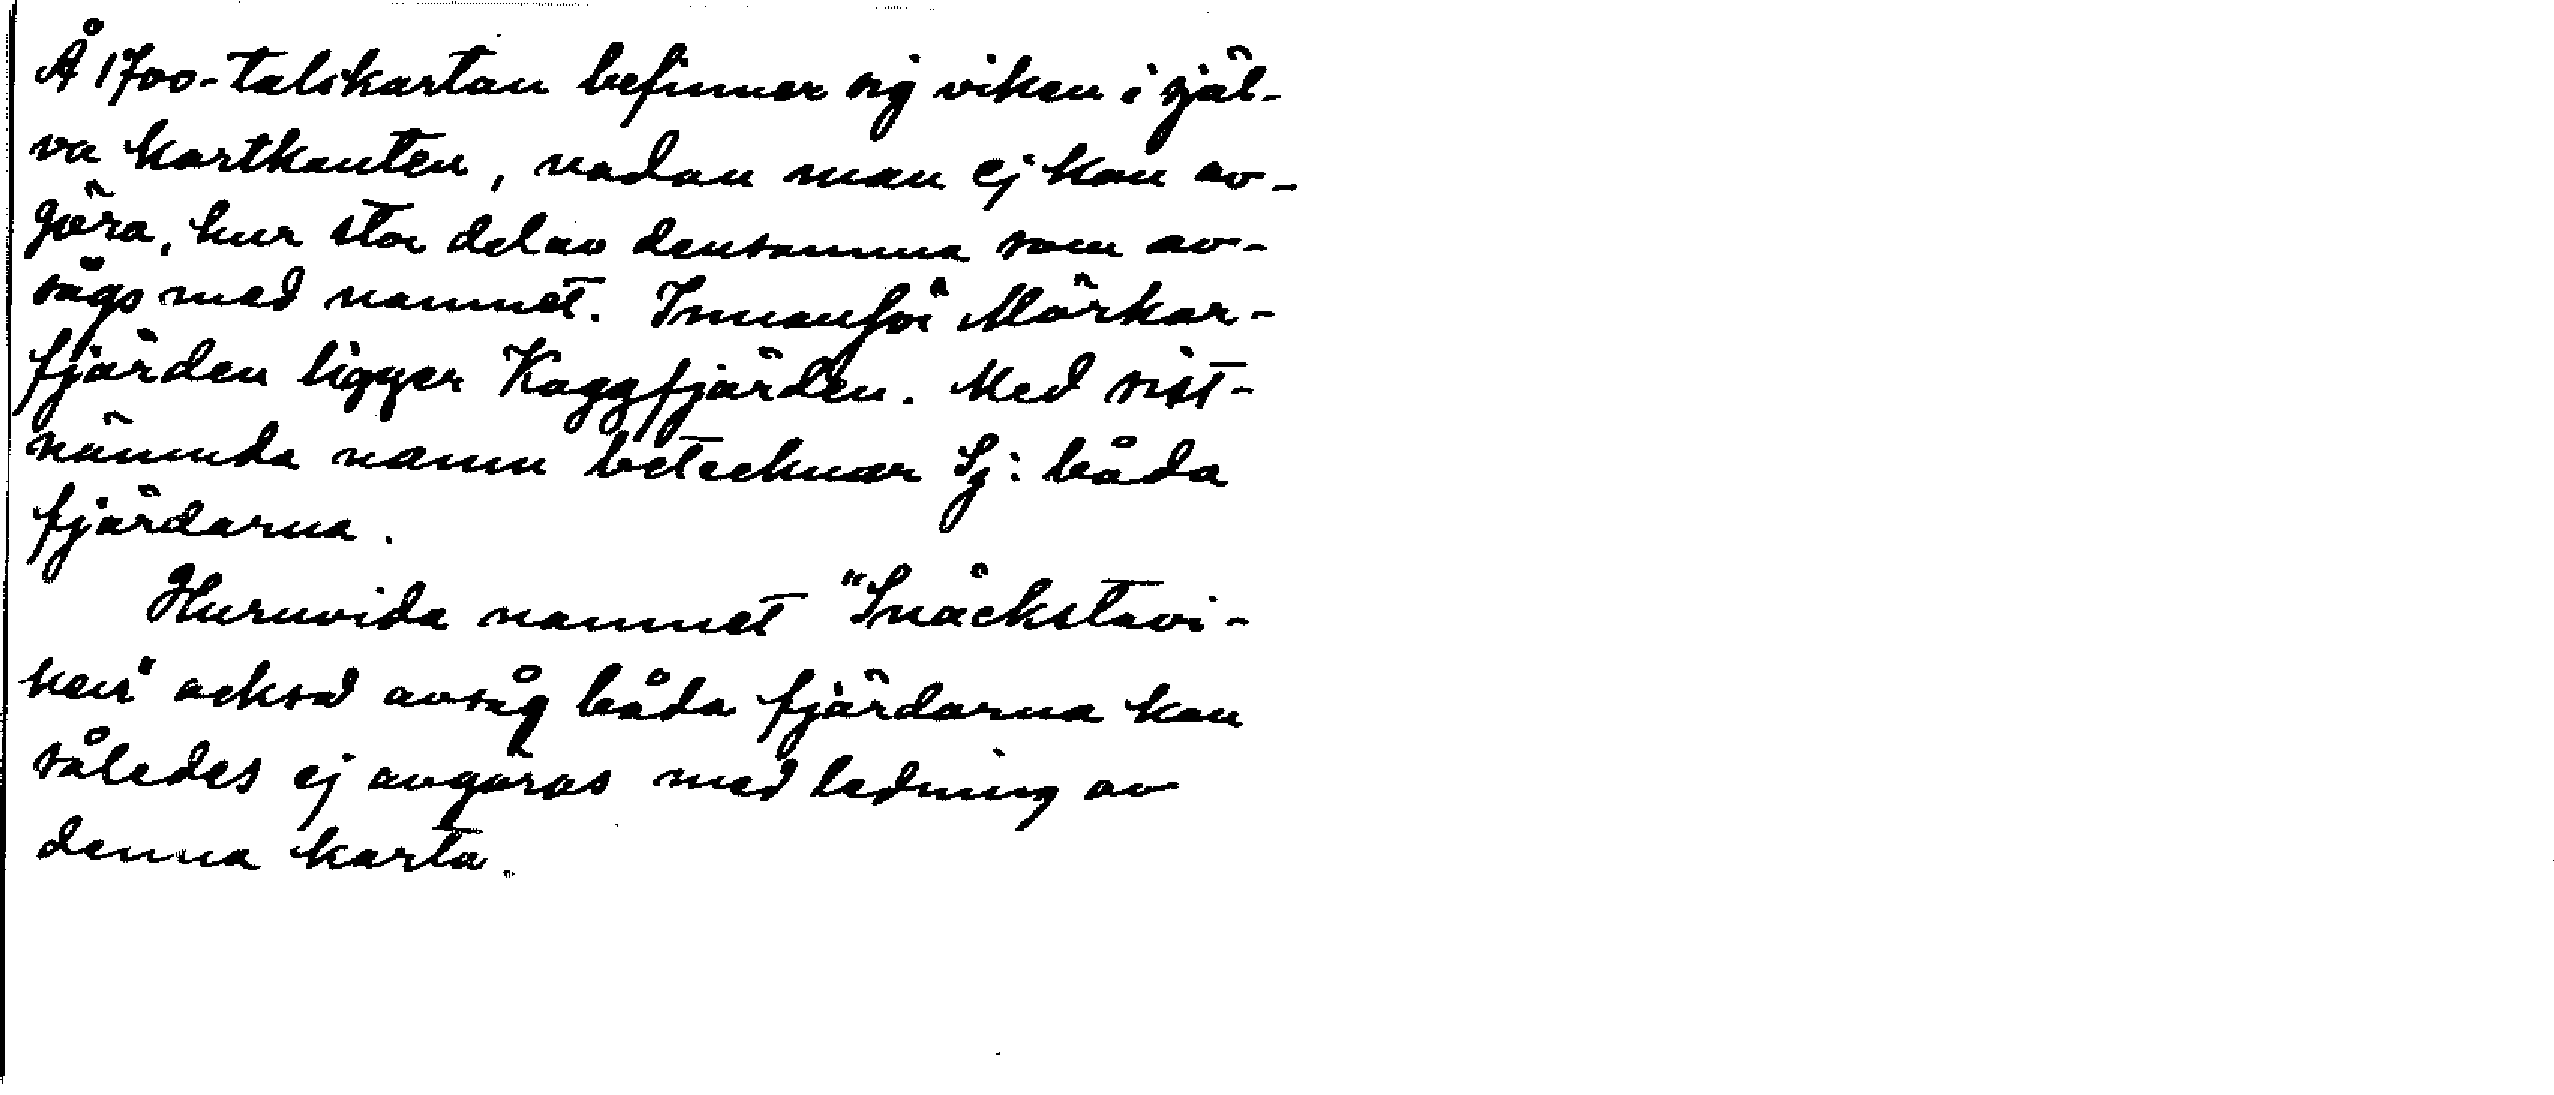 Å 1700-talskartan befinner sig viken i själ-
va kartkanten, vadan man ej kan av-
göra, hur stor del av densamma som av-
sågs med namnet. Innanför Mörkar-
fjärden ligger Kaggfjärden. Med sist-
nämnda namn betecknar Sj: båda
fjärdarna.
Huruvida namnet "Snäckstavi-
ken" också avsåg båda fjärdarna kan
således ej avgöras med ledning av
denna karta.